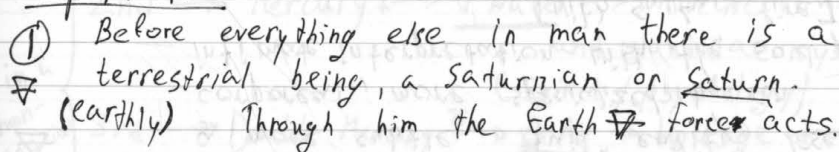 ① Before everything else in man there is a
🜃 terrestrial being, a Saturnian or Saturn.
(earthly) Through him the Earth 🜃 force acts.